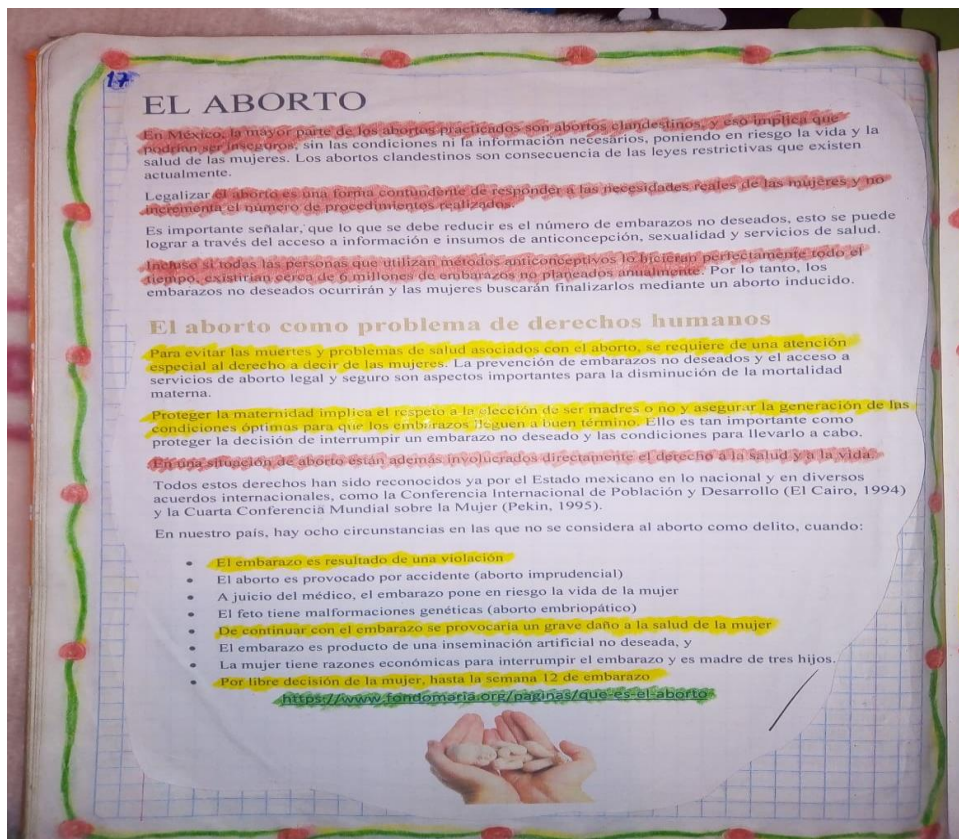 17
EL ABORTO
En México, la mayor parte de los abortos practicados son abortos clandestinos, y eso implica que
podrían ser inseguros, sin las condiciones ni la información necesarios, poniendo en riesgo la vida y la
salud de las mujeres. Los abortos clandestinos son consecuencia de las leyes restrictivas que existen
actualmente.
Legalizar el aborto es una forma contundente de responder a las necesidades reales de las mujeres y no
incrementa el número de procedimientos realizados.
Es importante señalar, que lo que se debe reducir es el número de embarazos no deseados, esto se puede
lograr a través del acceso a información e insumos de anticoncepción, sexualidad y servicios de salud.
Incluso si todas las personas que utilizan métodos anticonceptivos lo hicieran perfectamente todo el
tiempo, existirían cerca de 6 millones de embarazos no planeados anualmente. Por lo tanto, los
embarazos no deseados ocurrirán y las mujeres buscarán finalizarlos mediante un aborto inducido.
El aborto como problema de derechos humanos
Para evitar las muertes y problemas de salud asociados con el aborto, se requiere de una atención
especial al derecho a decir de las mujeres. La prevención de embarazos no deseados y el acceso a
servicios de aborto legal y seguro son aspectos importantes para la disminución de la mortalidad
materna.
Proteger la maternidad implica el respeto a la elección de ser madres o no y asegurar la generación de las
condiciones óptimas para que los embarazos lleguen a buen término. Ello es tan importante como
proteger la decisión de interrumpir un embarazo no deseado y las condiciones para llevarlo a cabo.
En una situación de aborto están además involucrados directamente el derecho a la salud y a la vida.
Todos estos derechos han sido reconocidos ya por el Estado mexicano en lo nacional y en diversos
acuerdos internacionales, como la Conferencia Internacional de Población y Desarrollo (El Cairo, 1994)
y la Cuarta Conferencia Mundial sobre la Mujer (Pekin, 1995).
En nuestro país, hay ocho circunstancias en las que no se considera al aborto como delito, cuando:
• El embarazo es resultado de una violación
• El aborto es provocado por accidente (aborto imprudencial)
• A juicio del médico, el embarazo pone en riesgo la vida de la mujer
• El feto tiene malformaciones genéticas (aborto embriopático)
• De continuar con el embarazo se provocaría un grave daño a la salud de la mujer
• El embarazo es producto de una inseminación artificial no deseada, y
• La mujer tiene razones económicas para interrumpir el embarazo y es madre de tres hijos.
• Por libre decisión de la mujer, hasta la semana 12 de embarazo
https://www.fondomaria.org/paginas/que-es-el-aborto